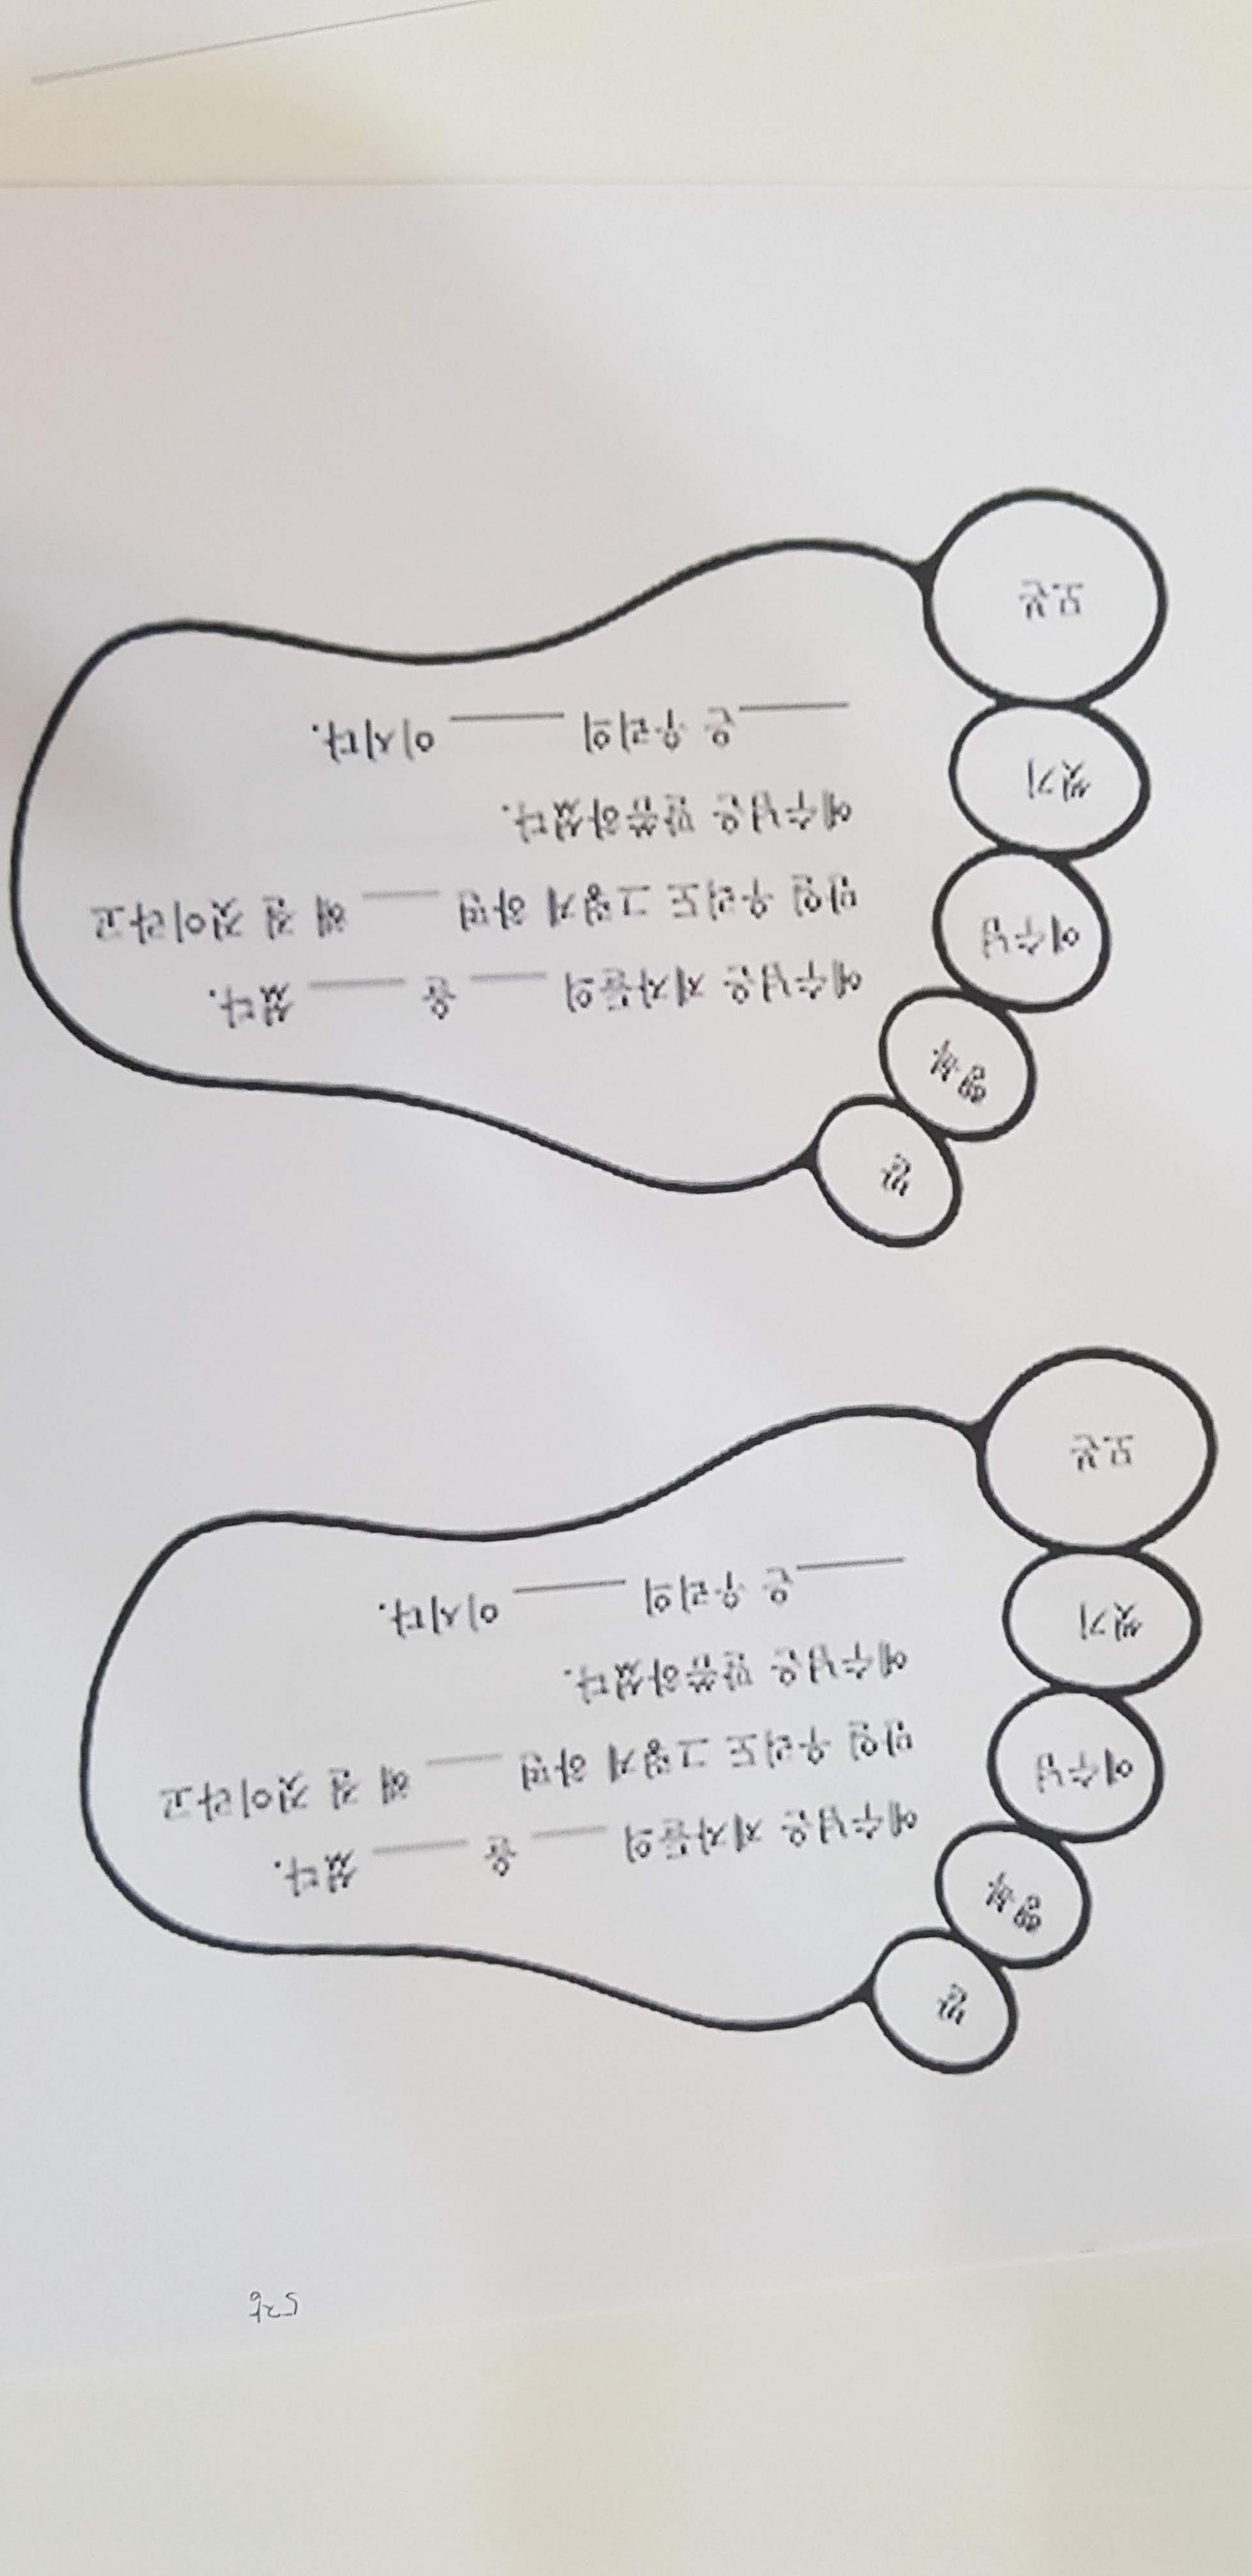 발
행복
예수님
씻기
모본
예수님은 제자들의 ____ 을 ____ 셨다.
만일 우리도 그렇게 하면 ____ 해 질 것이라고
예수님은 말씀하셨다.
____은 우리의 ____ 이시다.
발
행복
예수님
씻기
모본
예수님은 제자들의 ____ 을 ____ 셨다.
만일 우리도 그렇게 하면 ____ 해 질 것이라고
예수님은 말씀하셨다.
____은 우리의 ____ 이시다.